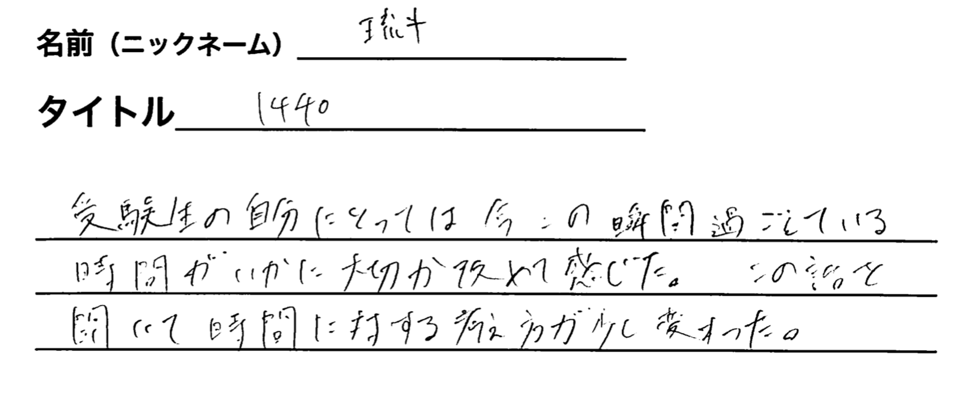 名前（ニックネーム） 琉斗
タイトル 1440
受験生の自分にとっては今この瞬間過ごしている
時間がいかに大切か改めて感じた。この話を
聞いて時間に対する考え方が少し変わった。